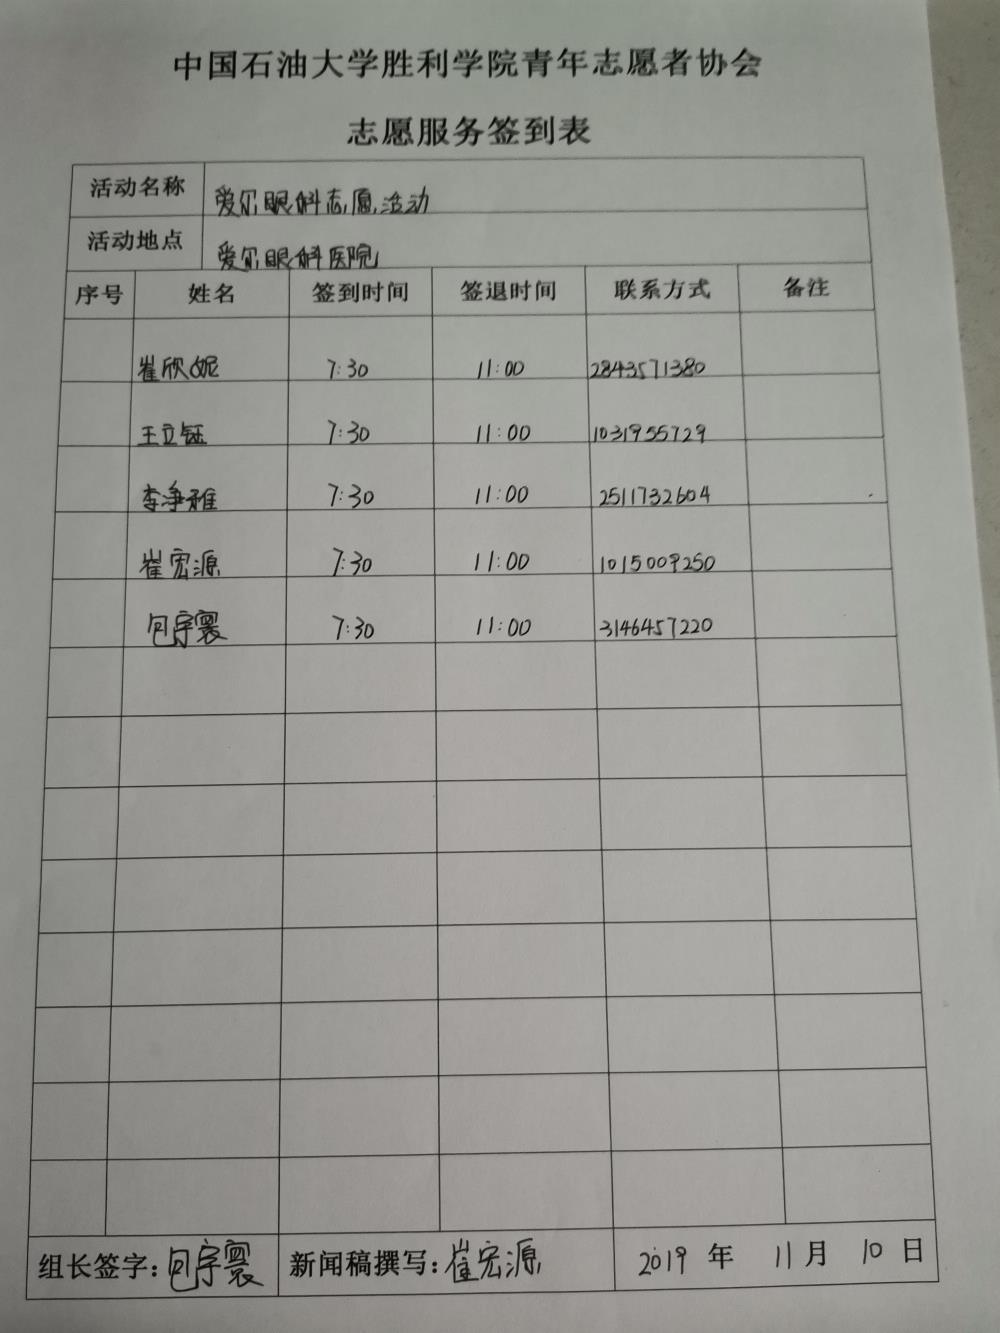 中国石油大学胜利学院青年志愿者协会
志愿服务签到表
活动名称 爱尔眼科志愿活动
活动地点 爱尔眼科医院
序号 姓名 签到时间 签退时间 联系方式 备注
崔欣妮 7:30 11:00 2843571380
王立钰 7:30 11:00 1031955729
李净雅 7:30 11:00 2511732604
崔宏源 7:30 11:00 1015009250
包宇寰 7:30 11:00 3146457220
组长签字：包宇寰 新闻稿撰写：崔宏源 2019 年 11 月 10 日